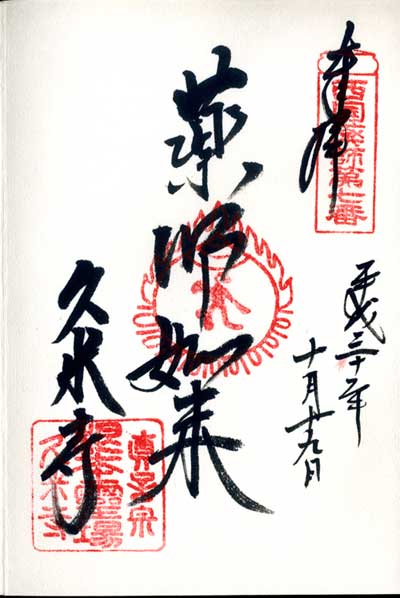 奉拝
西国薬師第七番
平成三十年
十月廿九日
薬師如来
久米寺
真言宗
久米寺